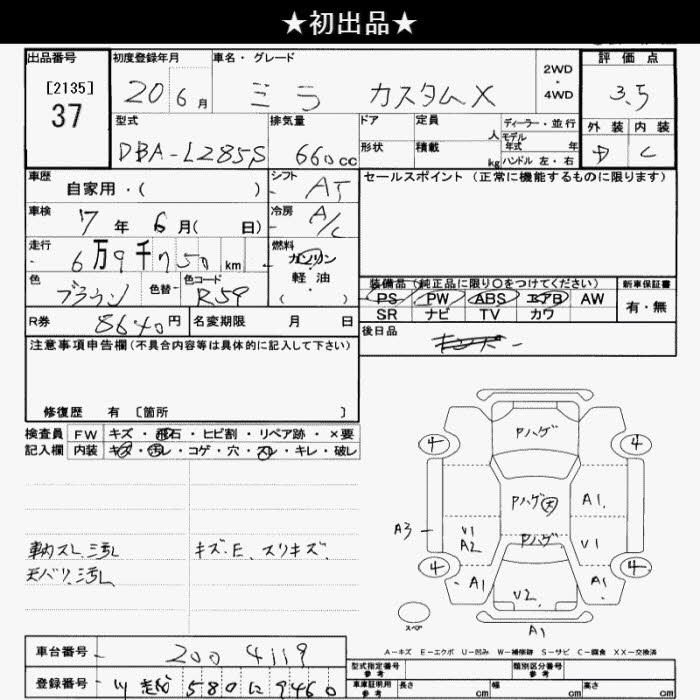 ★初出品★
出品番号
[2135]
37
初度登録年月
20 6 月
車名・グレード
ミラ カスタムX
2WD
・
4WD
評価点
3.5
型式
DBA-L285S
排気量
660cc
ドア
形状
定員 人
積載 kg
ディーラー・並行
モデル
年式 年
ハンドル 左・右
外装 内装
D C
車歴
自家用・( )
シフト
AT
セールスポイント(正常に機能するものに限ります)
車検
7 年 6 月( 日)
冷房
A/C
走行
6万9千750 km
燃料
ガソリン
軽油
( )
色
ブラウン
色替-
色コード
R59
装備品(純正品に限り〇をつけてください)
新車保証書
PS PW ABS エアB AW
有・無
SR ナビ TV カワ
R券
8640円
名変期限 月 日
後日品
注意事項申告欄(不具合内容等は具体的に記入して下さい)
修復歴 有 〔箇所 〕
検査員 FW キズ・飛石・ヒビ割・リペア跡・×要
記入欄 内装 キズ・汚レ・コゲ・穴・スレ・キレ・破レ
車内スレ、汚レ
キズ・E、スリキズ、
天バリ汚レ
Pハゲ
4 4
Pハゲ大
A1
A3
V1
A2
Pハゲ
V1
4 4
A1
A1
V2
スペア
A1
A-キズ E-エクボ U-凹み W-補修跡 S-サビ C-腐食 XX-交換済
車台番号
200 4119
登録番号
580 に 9460
型式指定番号
参考
類別区分番号
参考
車庫証明用
参考
長さ cm
幅 cm
高さ cm